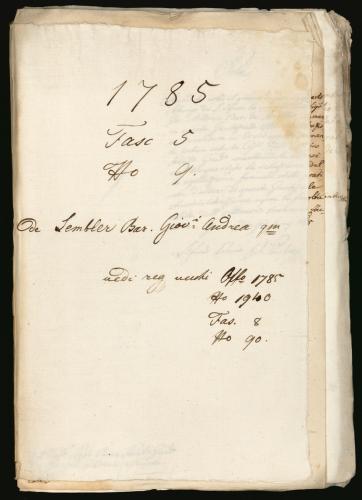 1785
Fasc 5
No 9.
de Sembler Bar. Giovⁱ Andrea qm
vedi reg 1785
No 1940
Fas. 8
No 90.